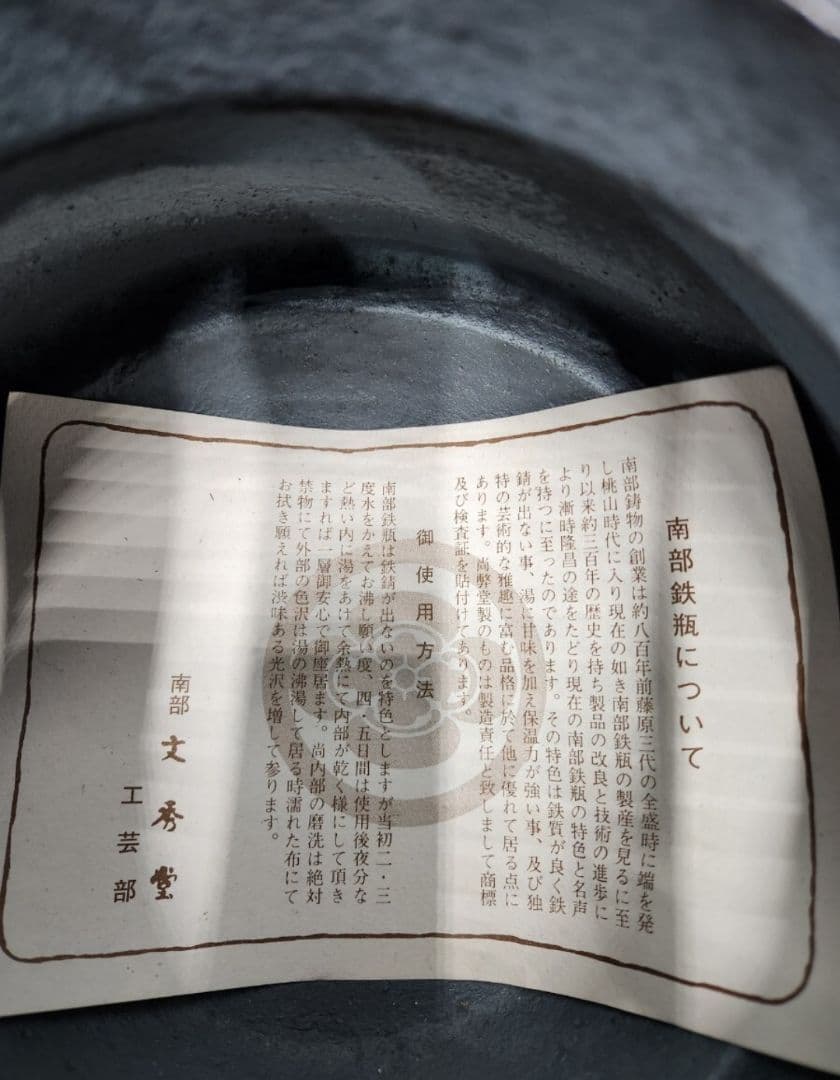 南部鉄瓶について
南部鋳物の創業は約八百年前藤原三代の全盛時に端を発
し桃山時代に入り現在の如き南部鉄瓶の製産を見るに至
り以来約三百年の歴史を持ち製品の改良と技術の進歩に
より漸時隆昌の途をたどり現在の南部鉄瓶の特色と名声
を持つに至ったのであります。その特色は鉄質が良く鉄
錆が出ない事、湯に甘味を加え保温力が強い事、及び独
特の芸術的な雅趣に富む品格に於て他に優れて居る点に
あります。尚弊堂製のものは製造責任と致しまして商標
及び検査証を貼付けてあります。
御使用方法
南部鉄瓶は鉄錆が出ないのを特色としますが当初二・三
度水をかえてお沸し願い度、四、五日間は使用後夜分な
ど熱い内に湯をあけて余熱にて内部が乾く様にして頂き
ますれば一層御安心で御座居ます。尚内部の磨洗は絶対
禁物にて外部の色沢は湯の沸湯して居る時濡れた布にて
お拭き願えれば渋味ある光沢を増して参ります。
南部文秀堂
工芸部